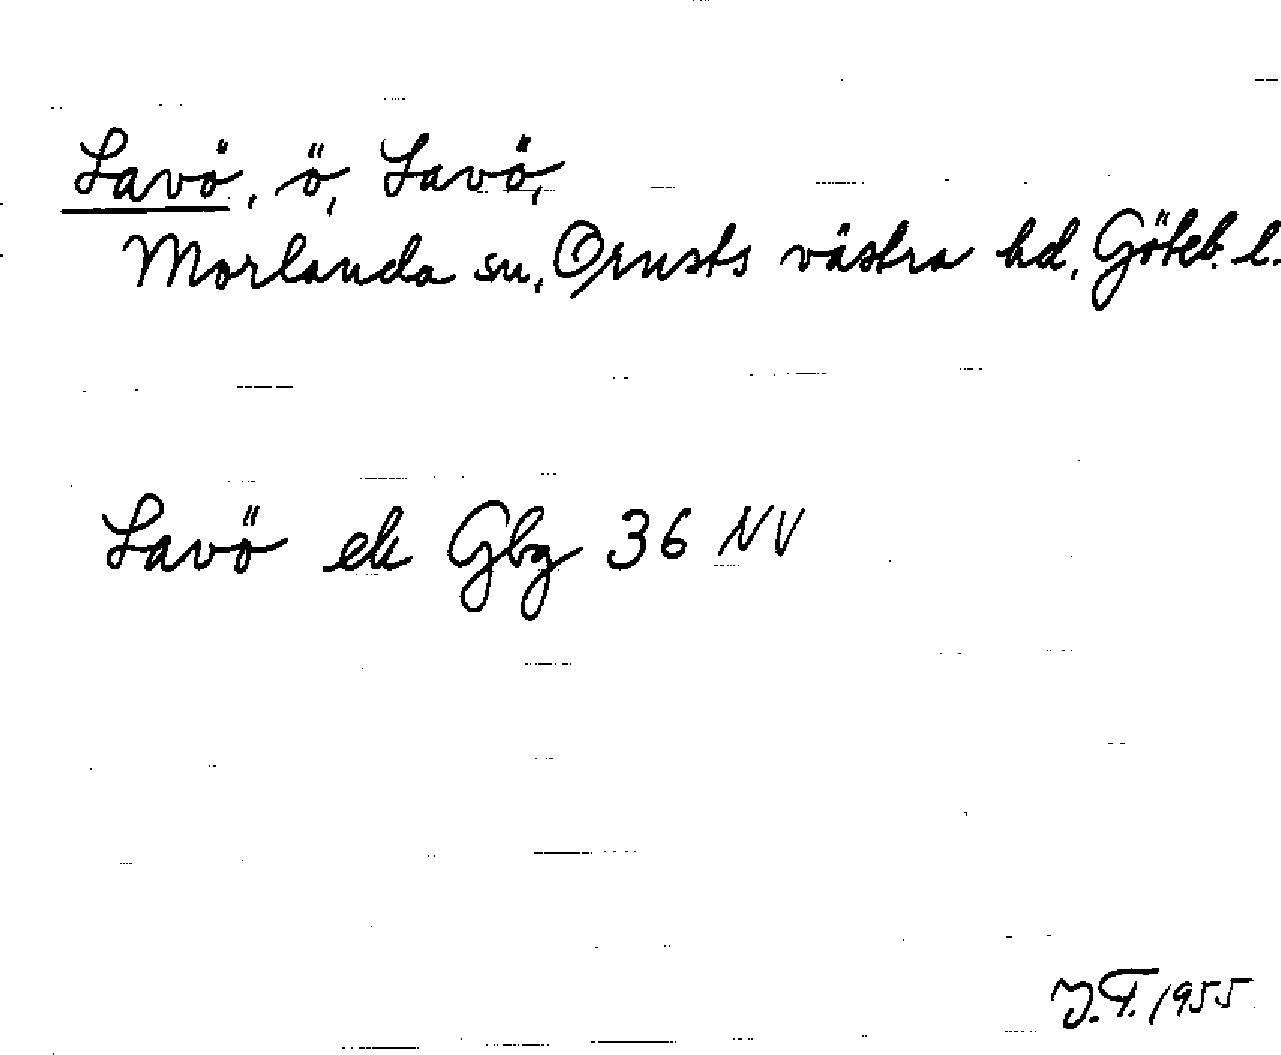 Lavö, ö, Lavö,
Morlanda sn, Orusts västra hd, Göteb. l.
Lavö ek Gbg 36 NV
J.T. 1955